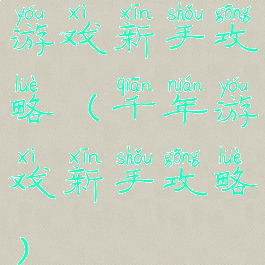 yóu xì xīn shǒu gōng
游戏新手攻
lüè qiān nián yóu
略（千年游
xì xīn shǒu gōng lüè
戏新手攻略
）